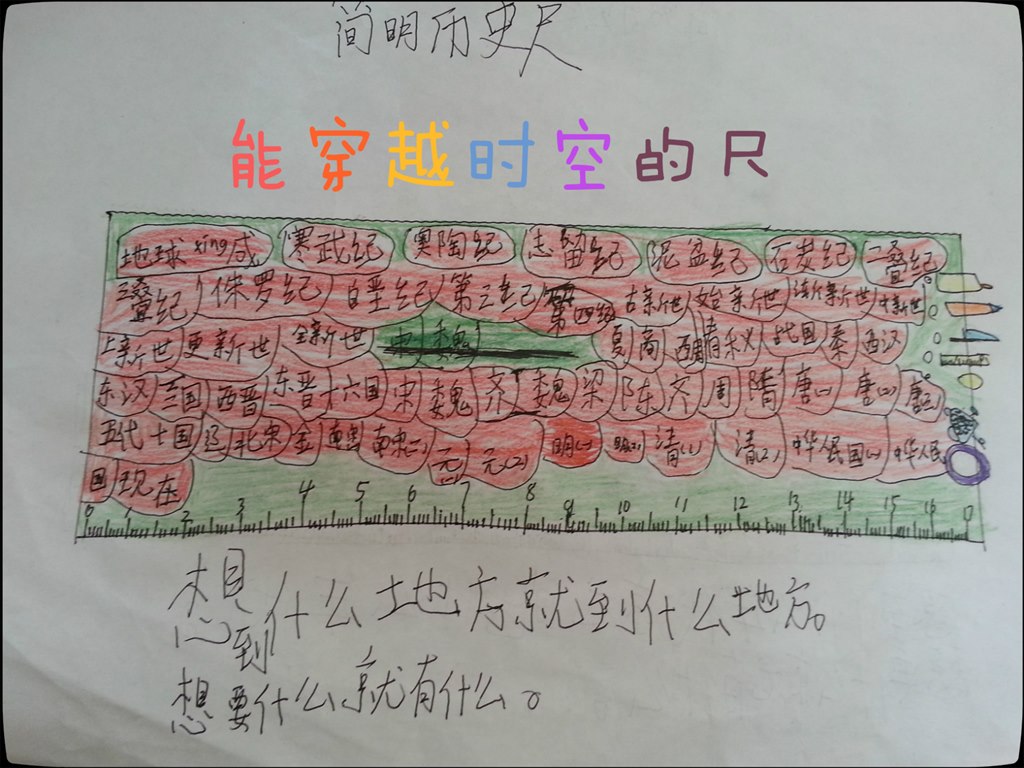 简明历史尺
能穿越时空的尺
地球xing成 寒武纪 奥陶纪 志留纪 泥盆纪 石炭纪 二叠纪
三叠纪 侏罗纪 白垩纪 第三纪 第四纪 古新世 始新世 渐新世 中新世
上新世 更新世 全新世 宋 魏 夏 商 西周 春秋 战国 秦 西汉
东汉 三国 西晋 东晋十六国 宋 魏 齐 魏 梁 陈 东 齐 周 隋 唐(一) 唐(二) 唐三
五代十国 辽 北宋 金 南宋 南宋(二) 元 元(2) 明(一) 明(2) 清(1) 清(2) 中华民国(一) 中华人民
国 现在
0 1 2 3 4 5 6 7 8 9 10 11 12 13 14 15 16 17
想到什么地方就到什么地方。
想要什么就有什么。